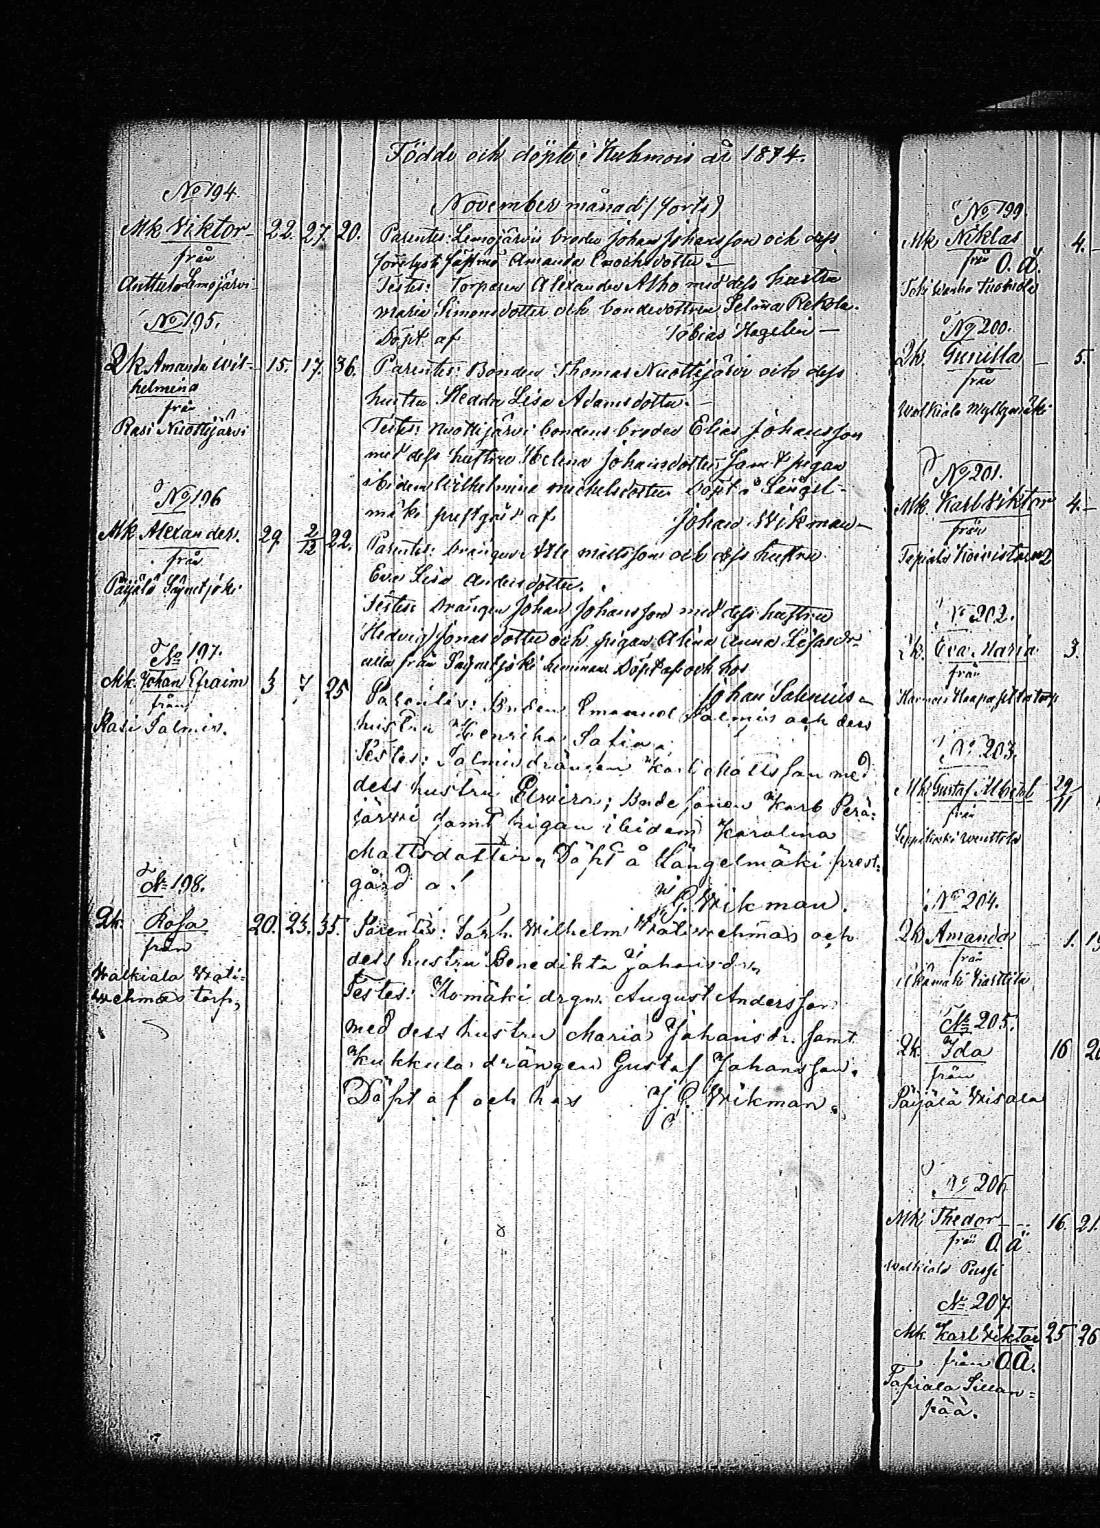 Födde och döpte i Kuhmois år 1874.
November månad (forts)
No 194.
Mk Viktor 22. 27. 20.
från
Anttula Lemojärvi
Parentes: Lemojärvi broder Johan Johansson och dess
Amanda Enochsdotter.
Testes: Torparen Alexander Alho med dess hustru
Maria Simonsdotter och bondedottren Selma Rekola.
Döpt af Tobias Hagelin
No 195.
Qk Amanda Wil- 15. 17. 36.
helmina
från
Rasi Nuottijärvi
Parentes: Bonden Thomas Nuottijärvi och dess
hustru Hedda Lisa Adamsdotter.
Testes: Nuottijärvi bondens broder Elias Johansson
med dess hustru Helena Johansdotter, samt pigan
ibidem Wilhelmina Michelsdotter Döpt å Längel-
mäki prestgård af Johan Wikman
No 196
Mk Alexander. 29 2/12 22.
från
Päijälä Säynetjoki
Parentes: drängen Matts son och dess hustru
Eva Lisa Andersdotter.
Testes: drängen Johan Johansson med dess hustru
Hedvig Jonasdotter och pigan Alina Anna
från Säynetjoki Döpt af och hos
Johan Salenius
No 197.
Mk. Johan Efraim 3 7 25
från
Rasi Salmis.
Parentes: Bonden Emanuel Salmis och dess
hustru Henrika Sofia.
Testes: Salmis drängen Karl Mattsson med
dess hustru Elwira; Bonde sonen Karl Perä-
järvi samt pigan ibidem Karolina
Mattsdotter, Döpt å Längelmäki prest-
gård af J. G. Wikman.
No 198.
Qk. Rosa 20. 23. 35.
från
Walkiala Wati-
wehmas torp,
Parentes: Wilhelm Watiwehmas och
dess hustru Benedikta Johansdr.
Testes: Komäki drgn. August Andersson
med dess hustru Maria Johansdr. samt
Kukkula drängen Gustaf Johansson.
Döpt af och hos J. G. Wikman.
No 199.
Mk Niklas 4.
från O.ä.
No 200.
Qk. Gunilla 5.
från
Walkiala Myllymäki
No 201.
Mk Karl Viktor 4.
från
Tapiala Koivisto
No 202.
Qk. Eva Maria 3.
från
No 203.
Mk Gustaf Albert 29/11
från
No 204.
Qk Amanda 1. 19
från
No 205.
Qk. Ida 16 20
från
Päijälä Wisala
No 206
Mk Thedor 16. 21.
från O.ä
Walkiala Pussi
No 207.
Mk. Karl Viktor 25 26
från O.Ä.
Tapiala Sillan-
pää.